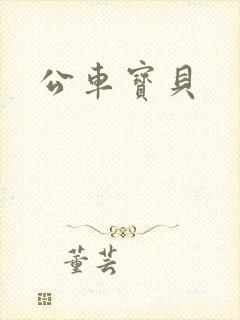 公車寶貝
董芸